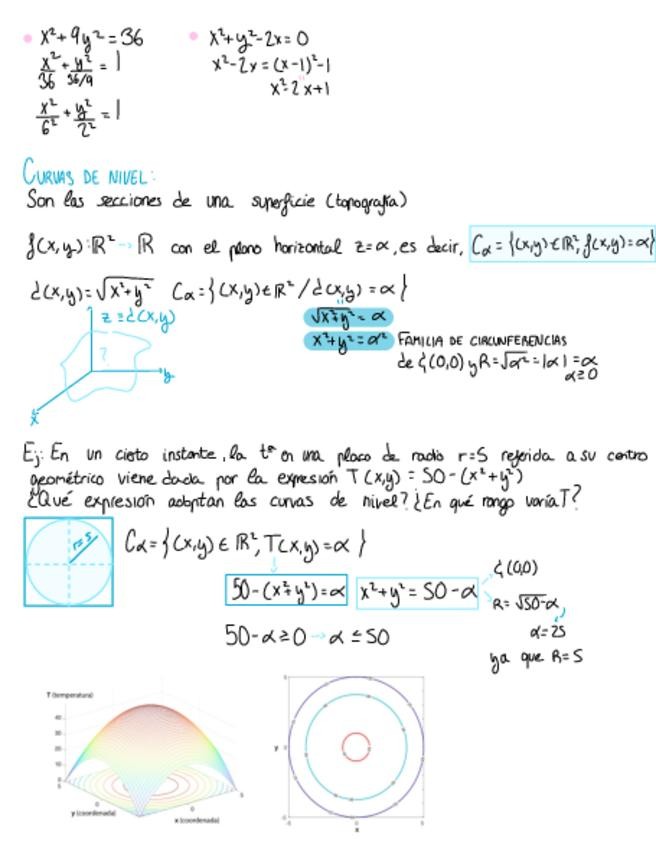 • x²+9y²=36
x²/36 + y²/36/9 = 1
x²/6² + y²/2² = 1
• x²+y²-2x=0
x²-2x=(x-1)²-1
x²-2x+1
CURVAS DE NIVEL:
Son las secciones de una superficie (topografía)
f(x,y):ℝ² → ℝ con el plano horizontal z=α, es decir, Cα={(x,y)∈ℝ², f(x,y)=α}
d(x,y)=√x²+y² Cα={(x,y)∈ℝ² / d(x,y)=α}
z=d(x,y)
?
y
x
√x²+y² = α
x²+y²=α²
FAMILIA DE CIRCUNFERENCIAS
de C(0,0) y R=√α²=|α|=α
α≥0
Ej: En un cierto instante, la tª en una placa de radio r=5 referida a su centro
geométrico viene dada por la expresión T(x,y) = 50-(x²+y²)
¿Qué expresión adoptan las curvas de nivel? ¿En qué rango varía T?
r=5
Cα={(x,y)∈ℝ², T(x,y)=α}
50-(x²+y²)=α
x²+y²=50-α
C(0,0)
R=√50-α
α=25
ya que R=5
50-α≥0 → α≤50
T (temperatura)
40
30
20
10
0
5
0
y (coordenada)
0
x (coordenada)
5
5
y
0
-5
-5
0
5
x